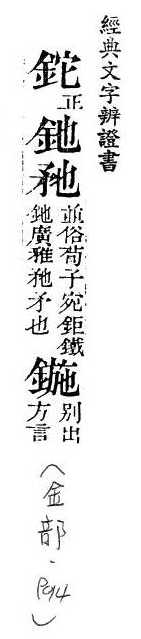 經典文字辨證書
鉈正
鉇
並俗荀子宛鉅鐵
鉇廣雅矛也
鍦
別出
方言
(金部·P94)